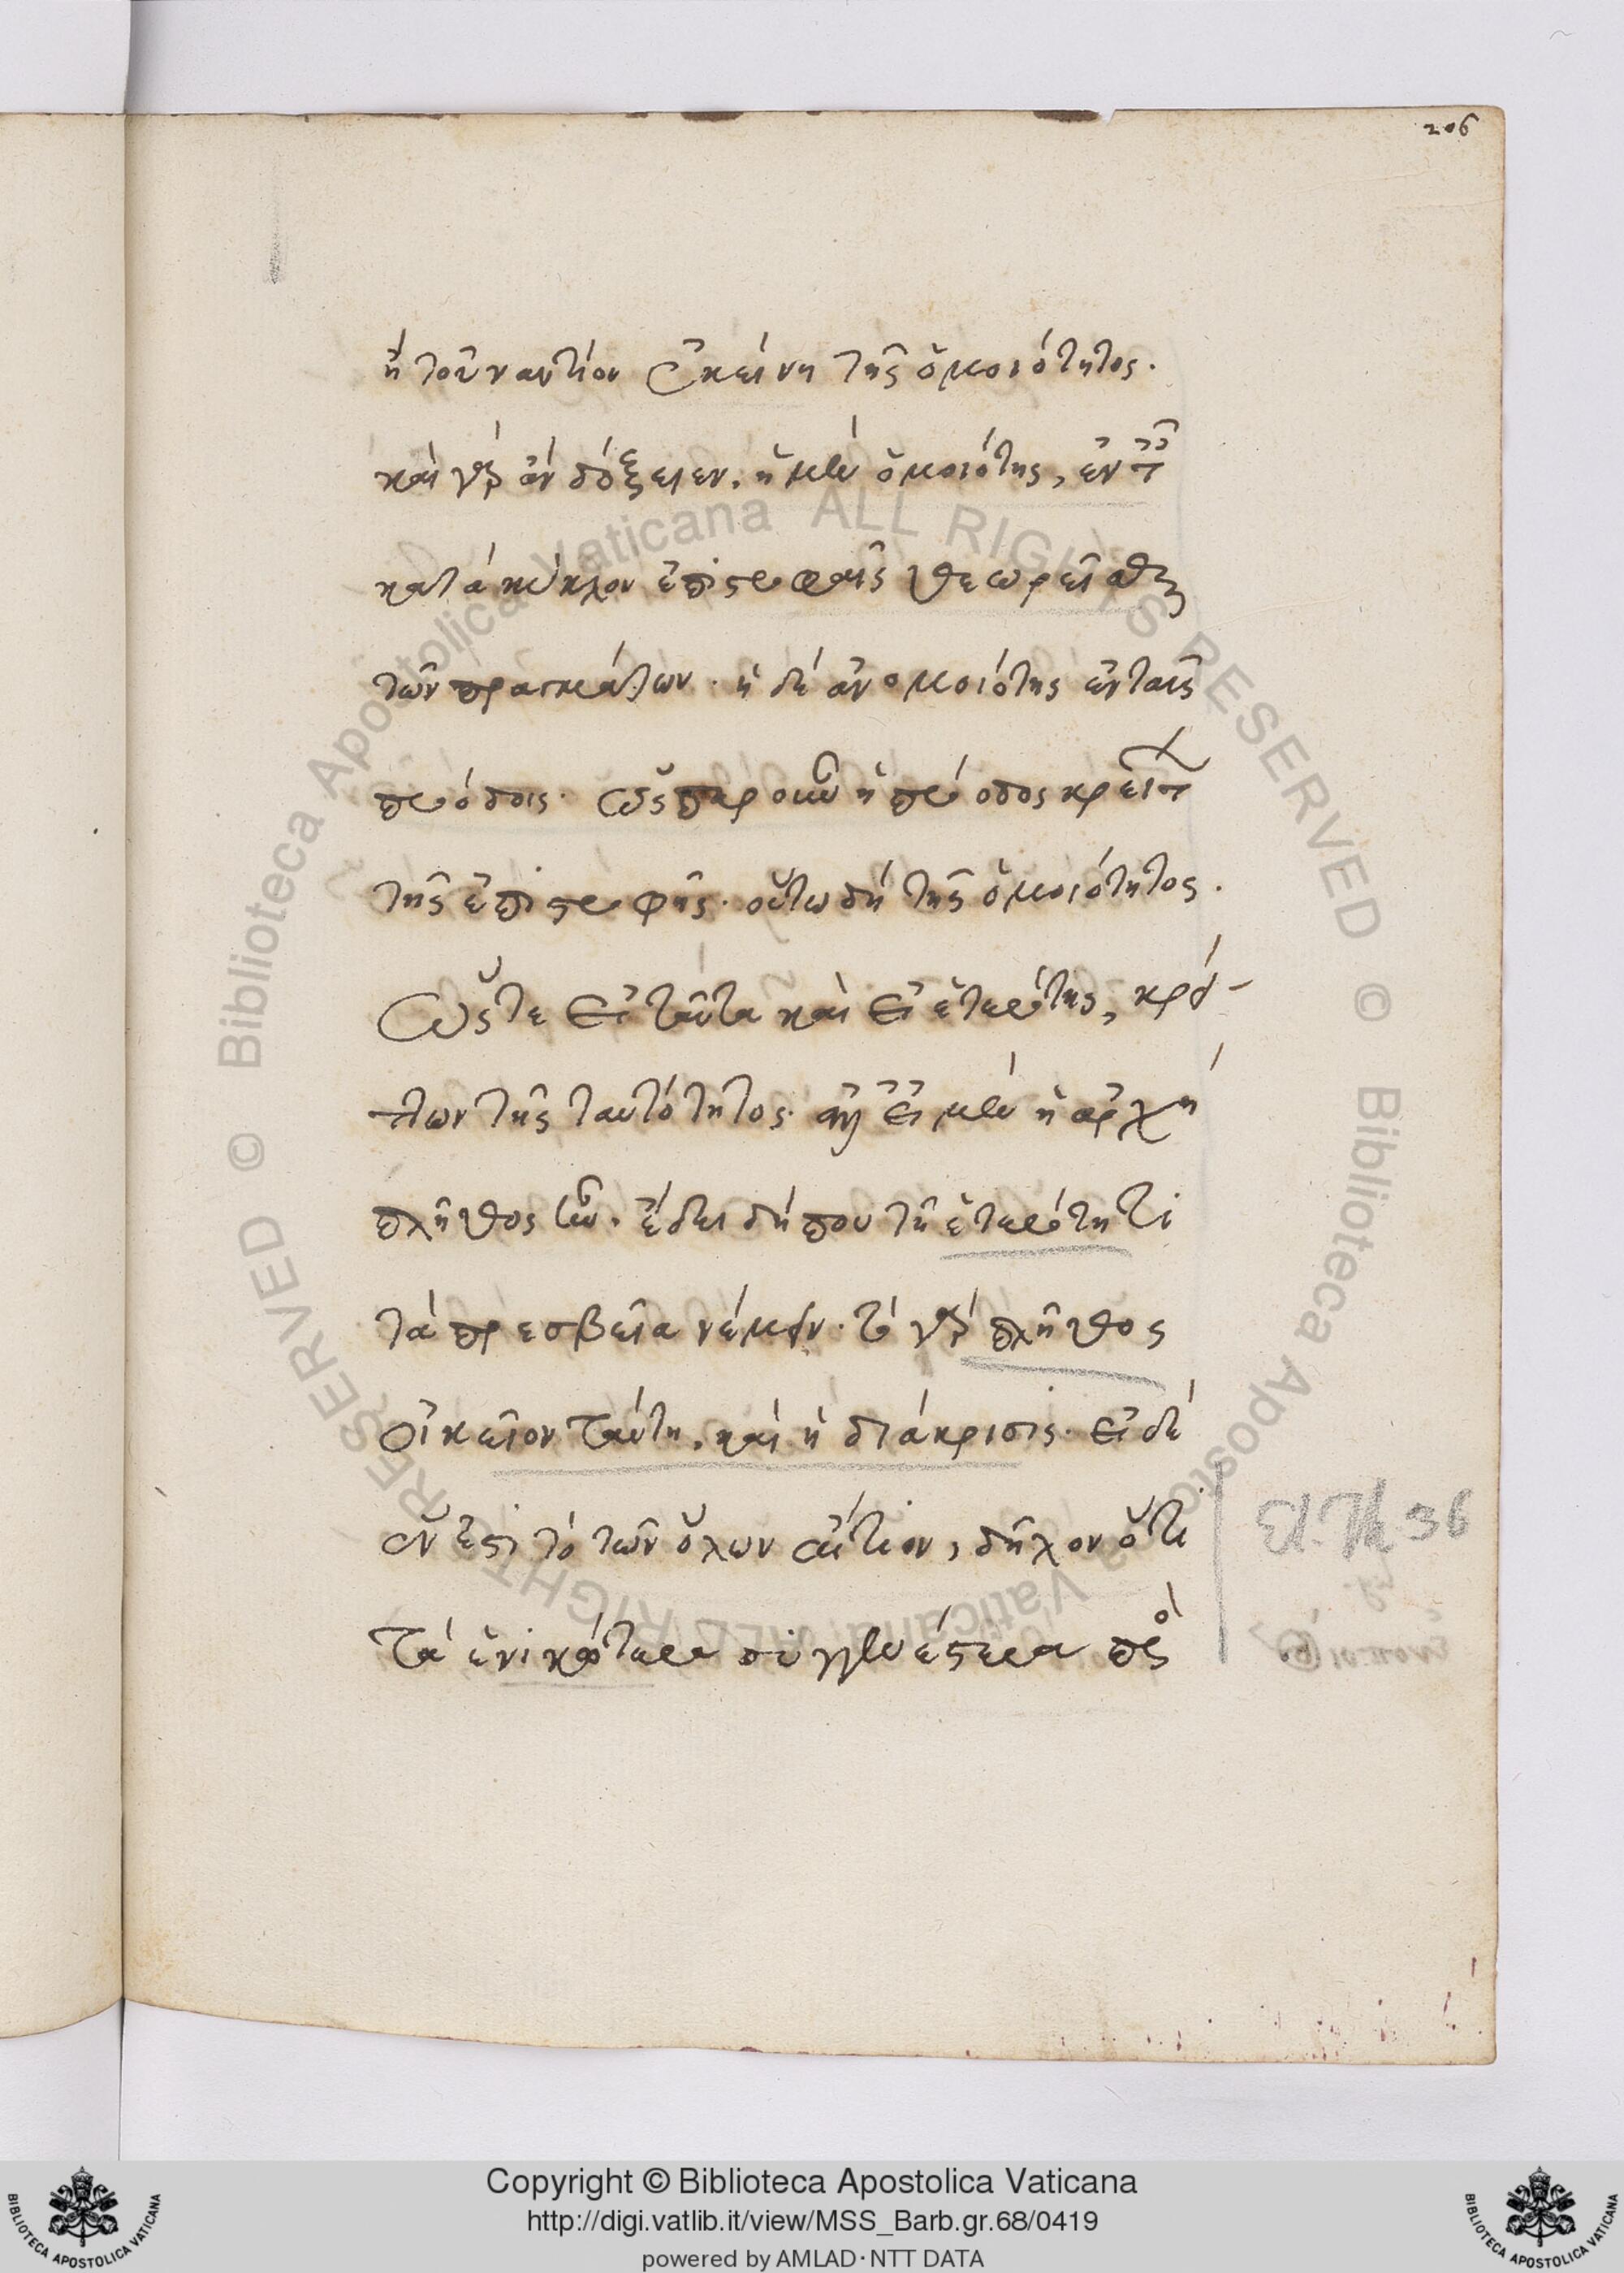 206
ἢ τοὐναντίον ἐκείνη τῆς ὁμοιότητος.
καὶ γὰρ ἂν δόξειεν, ἡ μὲν ὁμοιότης, ἐν τ
κατὰ κύκλον ἐπιστροφαῖς θεωρεῖσθαι
τῶν πραγμάτων. ἡ δὲ ἀνομοιότης ἐν ταῖς
προόδοις. ὥσπερ οὖν ἡ πρόοδος κρείττ
τῆς ἐπιστροφῆς. οὕτω δὴ τῆς ὁμοιότητος.
ὥστε εἰ ταῦτα καὶ εἰ ἑτερότης, κρεί-
ττων τῆς ταυτότητος. ἀλλ' εἰ μὲν ἡ ἀρχὴ
πλῆθος ἦν. ἔδει δήπου τῇ ἑτερότητι
τὰ πρεσβεῖα νέμειν. τὸ γὰρ πλῆθος
οἰκεῖον ταύτῃ, καὶ ἡ διάκρισις. εἰ δὲ
ἕν ἐστι τὸ τῶν ὅλων αἴτιον, δῆλον ὅτι
τὰ ἑνικώτερα συγγενέστερα πρὸς
El. Th. 36
© Biblioteca Apostolica Vaticana ALL RIGHTS RESERVED © Biblioteca Apostolica Vaticana ALL RIGHTS RESERVED
Copyright © Biblioteca Apostolica Vaticana
http://digi.vatlib.it/view/MSS_Barb.gr.68/0419
powered by AMLAD·NTT DATA
BIBLIOTECA APOSTOLICA VATICANA
BIBLIOTECA APOSTOLICA VATICANA